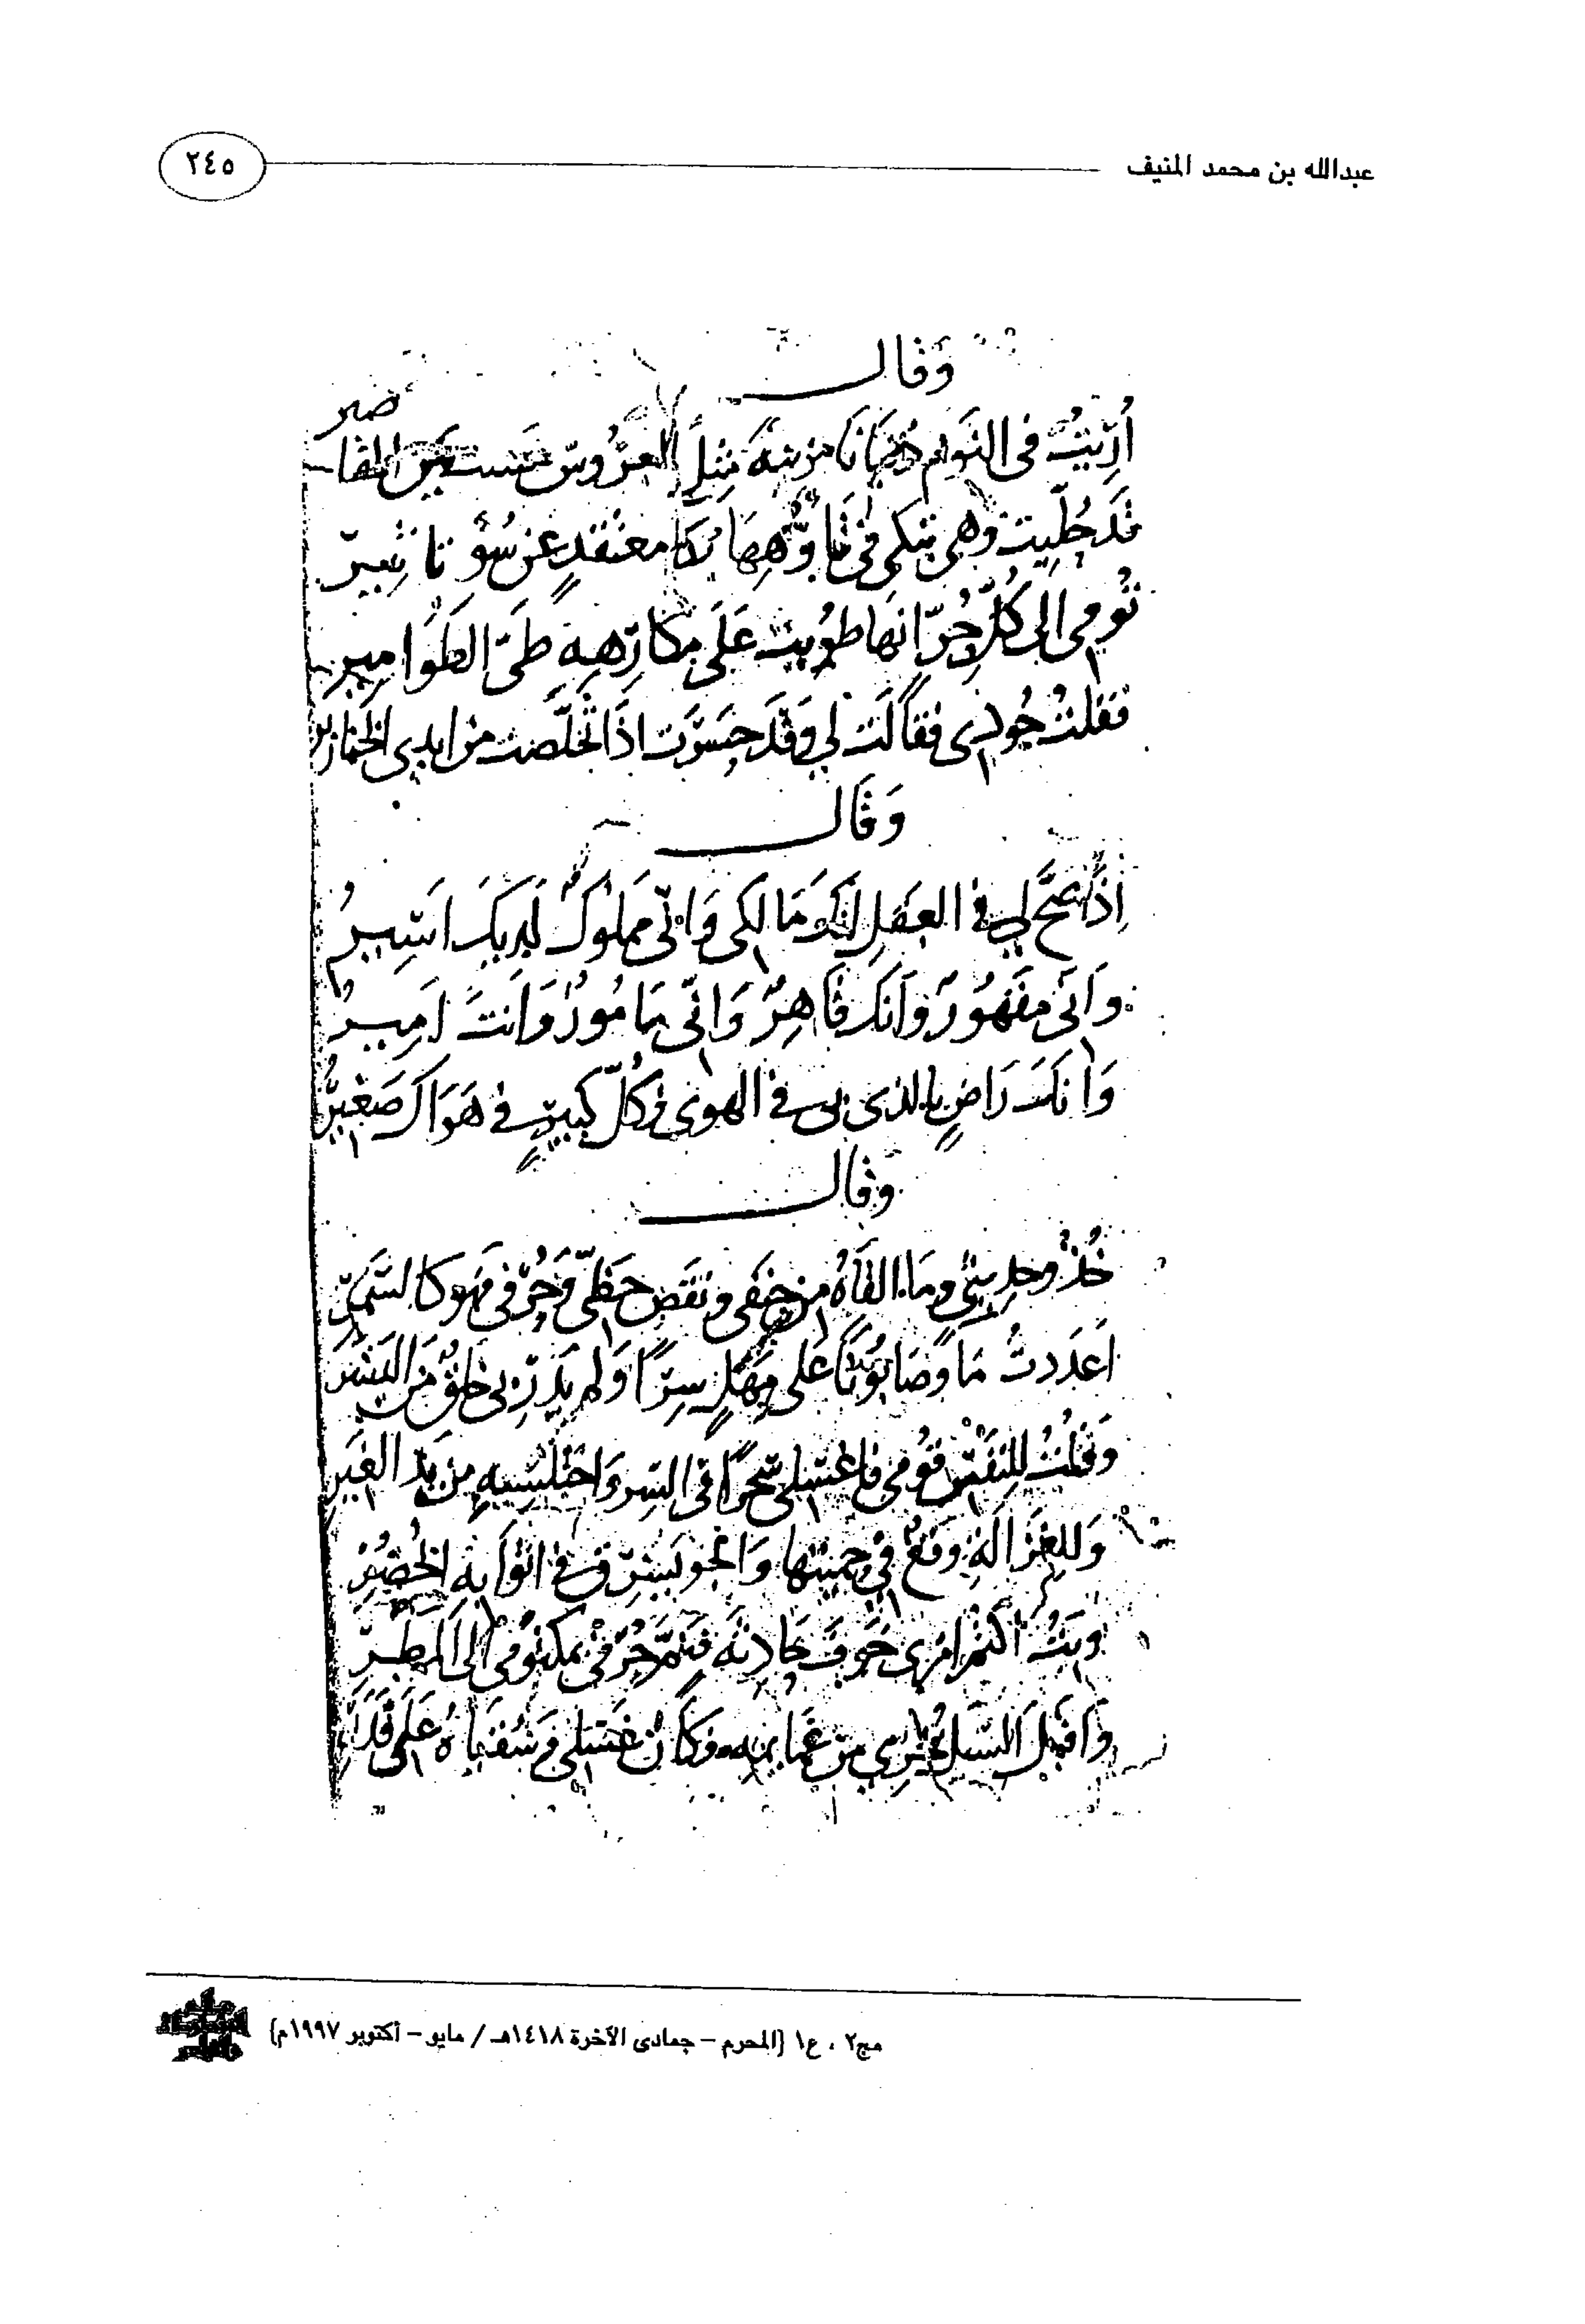 عبدالله بن محمد المنيف
٢٤٥
وَقَال
ضير
أُرِيْتُ فى النَّوم دُنيَانَا مزينةً مِثلَ العرُوسِ بين المقا
قد حُلِّيت وهى تبكى فى معتقدٍ عن سُوءِ تا ثير
تُومى الى كُلِّ حُرٍّ انها طويت عَلَى مكارِهِهِ طَىَّ الطوَامير
فقلتُ جُودى فقالَت لى وَقَد حسَرَت اذَا تخلَّصت من ايدى الخنازير
وَقَال
اِذَا صحَّ لي في العَقلِ انكَ مَالكى وَانّى مملوكٌ لَديكَ اَسِيرُ
وَاَنّى مقهُورٌ وَاَنكَ قَاهِرٌ وَانّى مَامُورٌ وَاَنتَ اَمِيرُ
وَانكَ رَاضٍ بالذى بى في الهوى فكلّ كبيرٍ في هَوَاكَ صَغيرُ
وقال
خُذُوا حديثى وَمَا القَاهُ من حنقى ونقص حَظّى وَحُرْفى فهو كالسَّمَرِ
اَعدَدتُ مَاً وصَابُونًا على مَهَلٍ سِرًّا وَلم يَدرِ بى خلقٌ منَ البَشَرِ
وَقلتُ للنَفسِ قُومى فاغتسلى سَحَرًا فى السِر وَاختلسِيهِ من يَدِ الغِيَرِ
وَللغَزَالَةِ وَقعٌ في حميتها وَالجو يُشرِق في اثوَابِهِ الخُضُرِ
وَبتُّ اَكتم امرى خَوفَ حَادِثَه فَنَمَّ حُرْفى بمكتومى الَى المَطَرِ
وَاَقبلَ السَّيل يَجرِي من غمايمه وَكَانَ غَسلى وَسُقيَاهُ عَلَى قَدَرِ
مج٢ ، ع١ (المحرم – جمادى الآخرة ١٤١٨هـ / مايو – أكتوبر ١٩٩٧م)